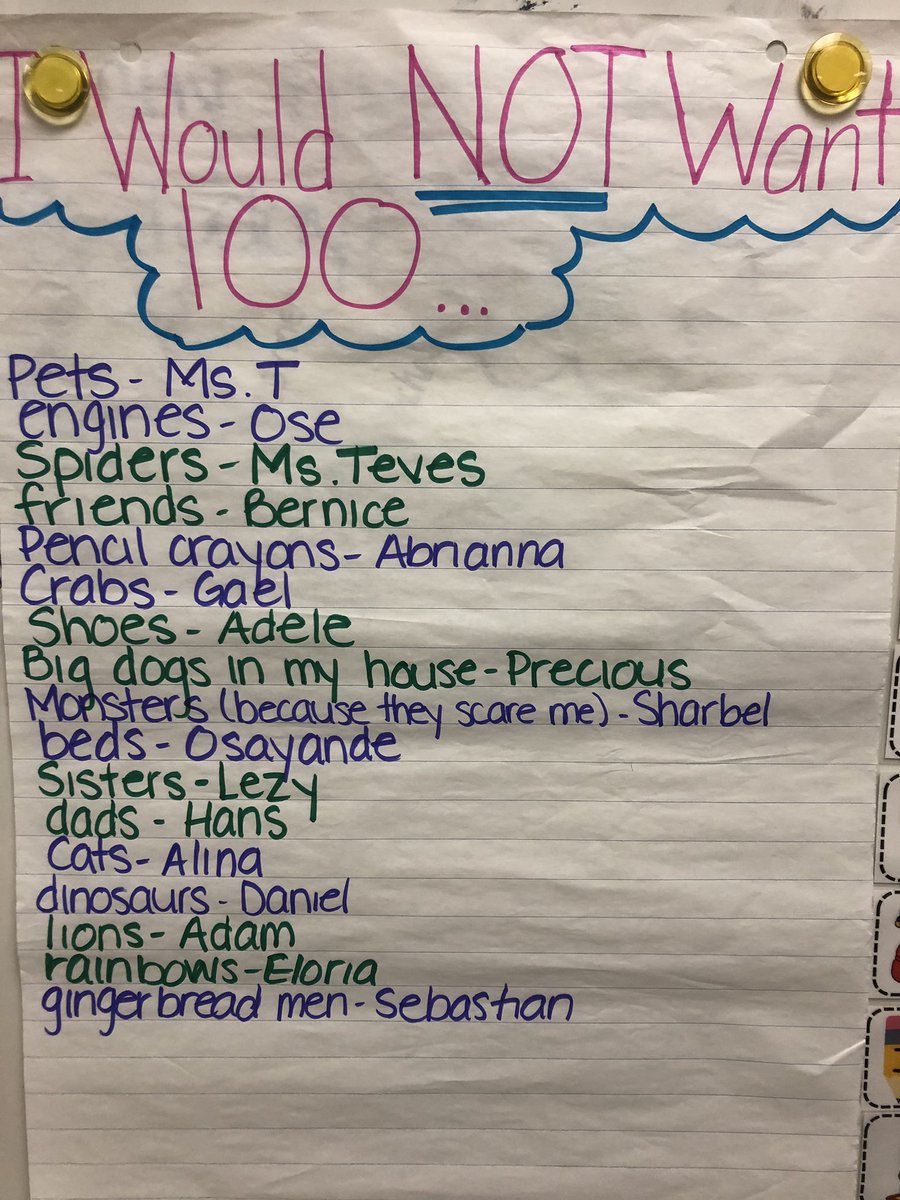 I Would NOT Want
100...
Pets - Ms. T
engines - Ose
Spiders - Ms. Teves
friends - Bernice
Pencil crayons - Abrianna
Crabs - Gael
Shoes - Adele
Big dogs in my house - Precious
Monsters (because they scare me) - Sharbel
beds - Osayande
Sisters - Lezy
dads - Hans
Cats - Alina
dinosaurs - Daniel
lions - Adam
rainbows - Eloria
gingerbread men - Sebastian